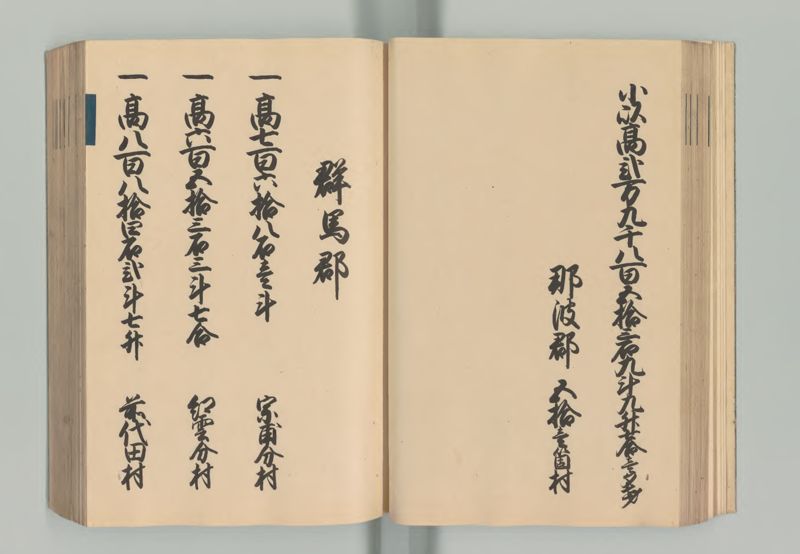 小以高弐万九千八百五拾三石九斗九升
那波郡 五拾壱箇村
群馬郡
一 高七百六拾八石壱斗 宗甫分村
一 高六百五拾三石三斗七合 紅雲分村
一 高八百八拾四石弐斗七升 前代田村